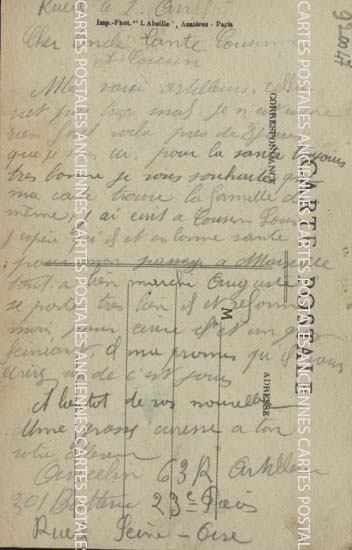 Rueil le 2 Avril
Imp.-Phot. "L'Abeille", Asnières - Paris
Cher oncle Tante Cousine
et Cousin
Me voici artilleur
pas trop mal je n'ai encore
rien fait voilà près de 8 jours
que je suis ici pour la santé toujours
très bonne je vous souhaite que
ma carte trouve la famille de
même, j'ai écrit a Cousin
j'espère qu'il est en bonne santé
pour mon passage a Marseille
tout a bien marché Auguste
se porte très bien il est réformé
moi pour cuire il est un gros
feiniant, il m'a promis qu'il vous
de c'est jours
A bientot de vos nouvelles
Une grosse caresse a ton
votre
Ancelin 63 R Artillerie
301 Batterie 23e Pièce
Rueil Seine-Oise
CORRESPONDANCE
CARTE POSTALE
M
ADRESSE
920047
CARTES POSTALES ANCIENNES CARTES POSTALES ANCIENNES CARTES POSTALES